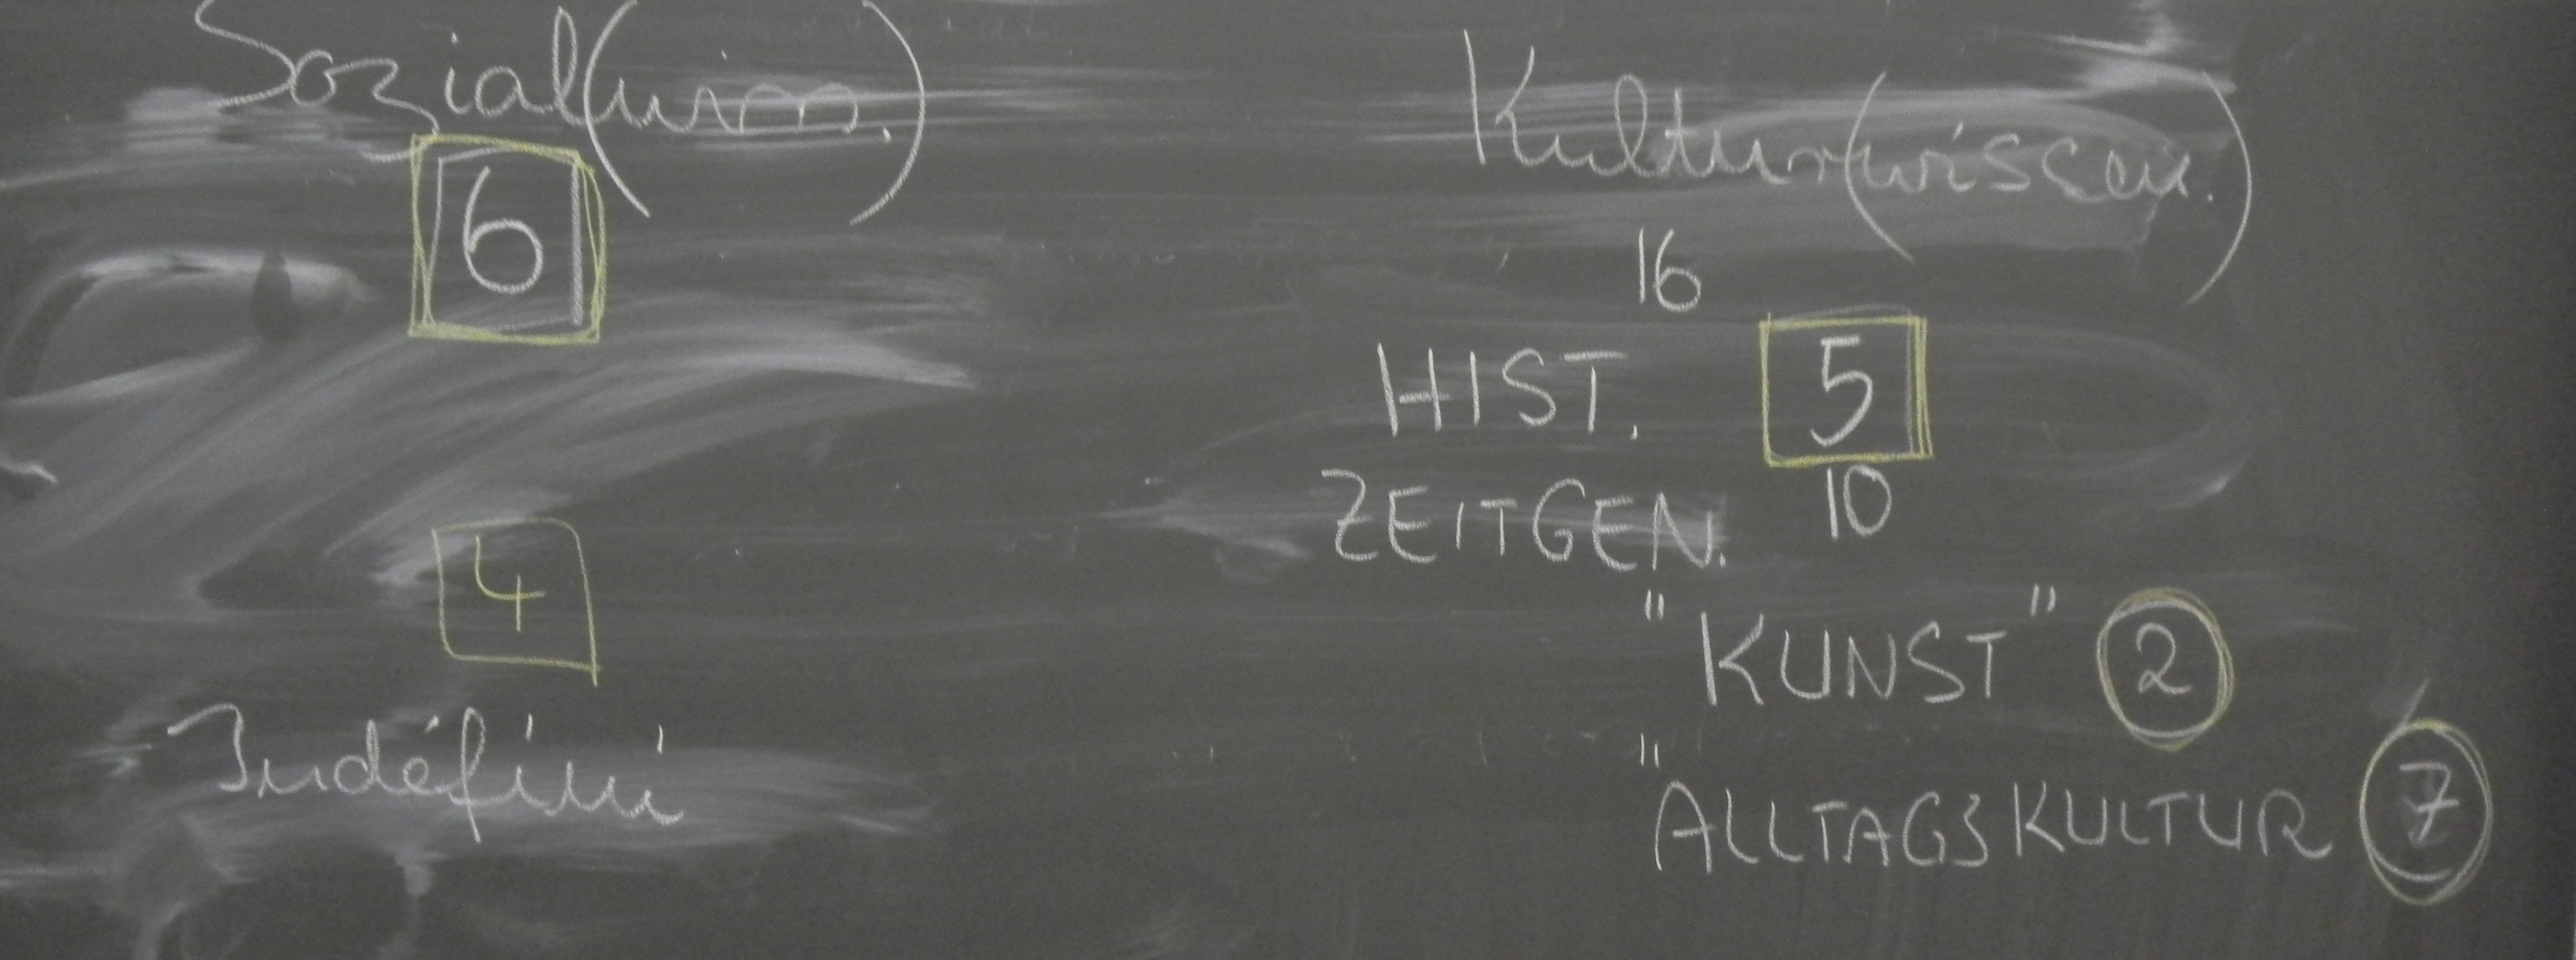 Sozial(wiss.)
6
4
Indéfini
Kultur(wissen.)
16
HIST. 5
ZEITGEN. 10
"KUNST" 2
"ALLTAGSKULTUR 7